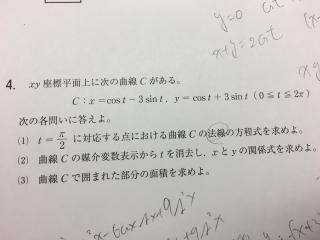 y=0
x+y=2
4. xy座標平面上に次の曲線Cがある。
C：x=cos t−3 sin t，y=cos t+3 sin t（0≦t≦2π）
次の各問いに答えよ。
(1) t=π/2 に対応する点における曲線Cの法線の方程式を求めよ。
(2) 曲線Cの媒介変数表示からtを消去し，xとyの関係式を求めよ。
(3) 曲線Cで囲まれた部分の面積を求めよ。